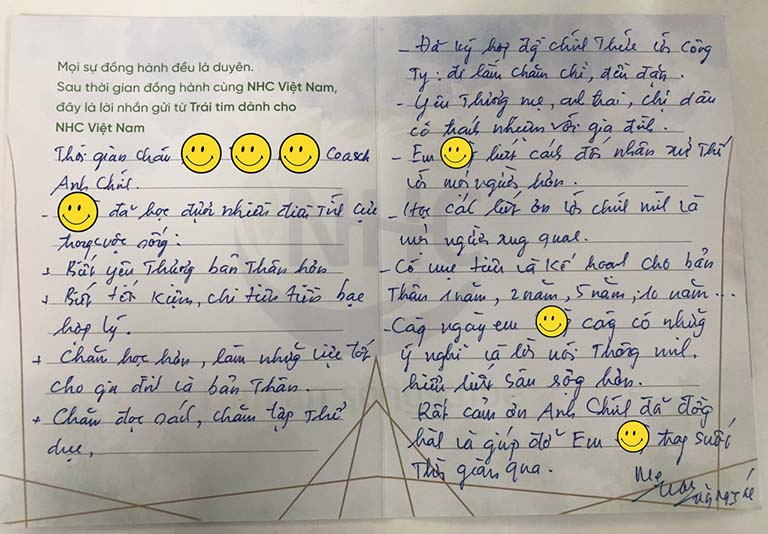 Mọi sự đồng hành đều là duyên.
Sau thời gian đồng hành cùng NHC Việt Nam,
đây là lời nhắn gửi từ Trái tim dành cho
NHC Việt Nam
Thời gian cháu Coasch
Anh Chức.
- đã học được nhiều điều tích cực
trong cuộc sống:
+ Biết yêu thương bản thân hơn
+ Biết tiết kiệm, chi tiêu tiền bạc
hợp lý.
+ Chăm học hơn, làm những việc tốt
cho gia đình và bản thân.
+ Chăm đọc sách, chăm tập thể
dục,
- Đã ký hợp đồng chính thức với công
ty: đi làm chăm chỉ, đều đặn.
- Yêu thương mẹ, anh trai, chị dâu
có trách nhiệm với gia đình.
- Em biết cách đối nhân xử thế
với mọi người hơn.
- Học cách biết ơn với chính mình và
mọi người xung quanh.
- Có mục tiêu và kế hoạch cho bản
thân 1 năm, 2 năm, 5 năm, 10 năm...
- Càng ngày em càng có những
ý nghĩ và lời nói thông minh,
hiểu biết sâu rộng hơn.
Rất cảm ơn Anh Chức đã đồng
hành và giúp đỡ Em trong suốt
thời gian qua.
Mẹ